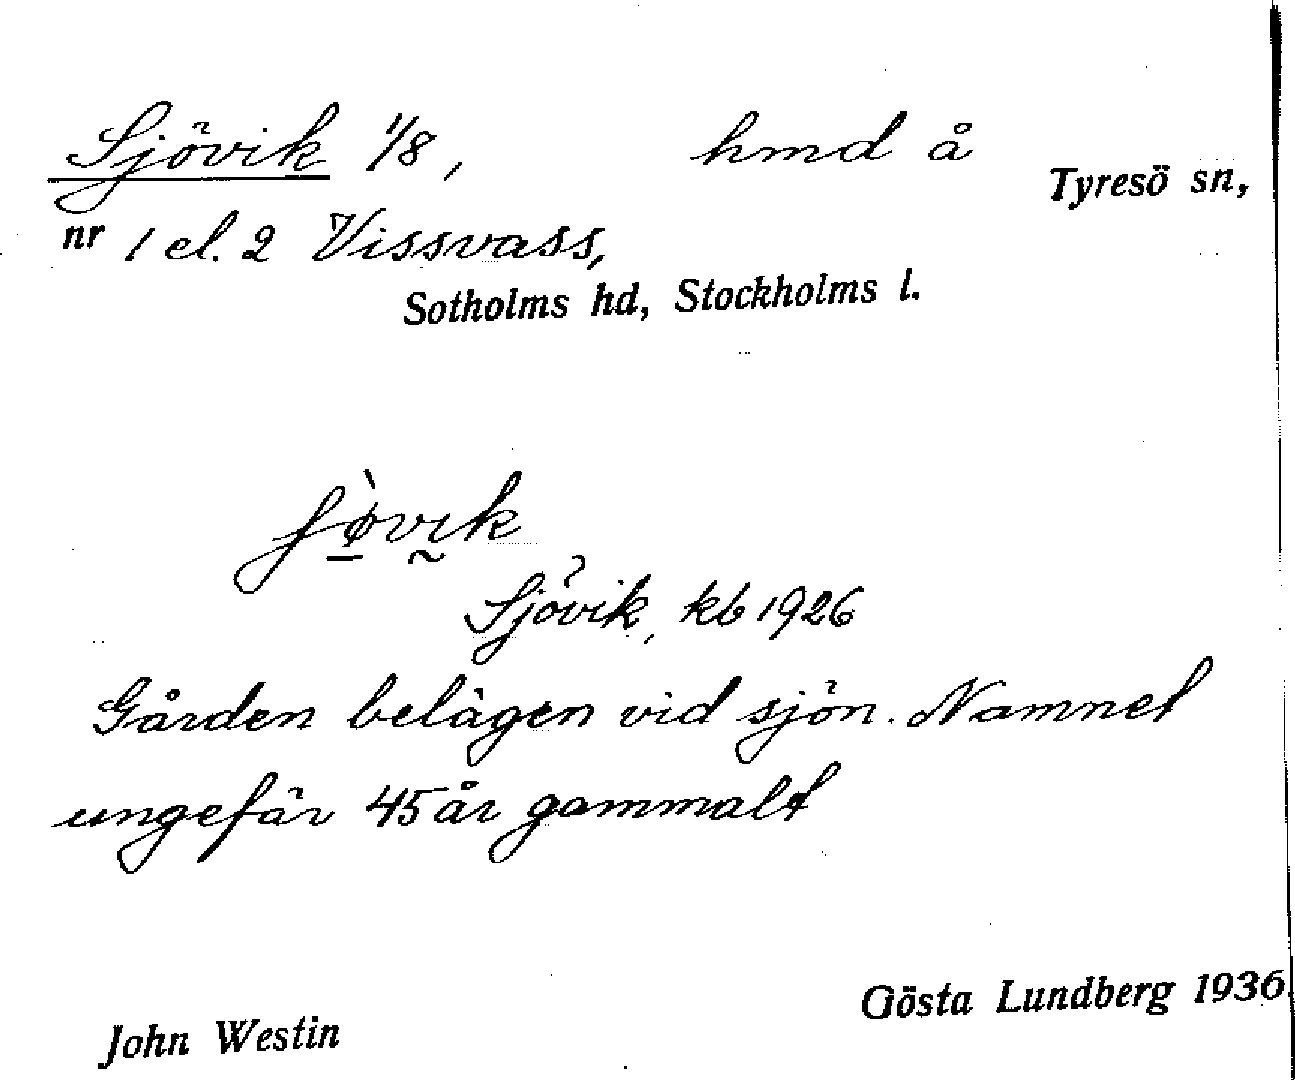 Sjövik 1/8, hmd å Tyresö sn,
nr 1 el. 2 Vissvass,
Sotholms hd, Stockholms l.
ʃø̱̀vɪ̰k
Sjövik, kb 1926
Gården belägen vid sjön. Namnet
ungefär 45 år gammalt
Gösta Lundberg 1936
John Westin